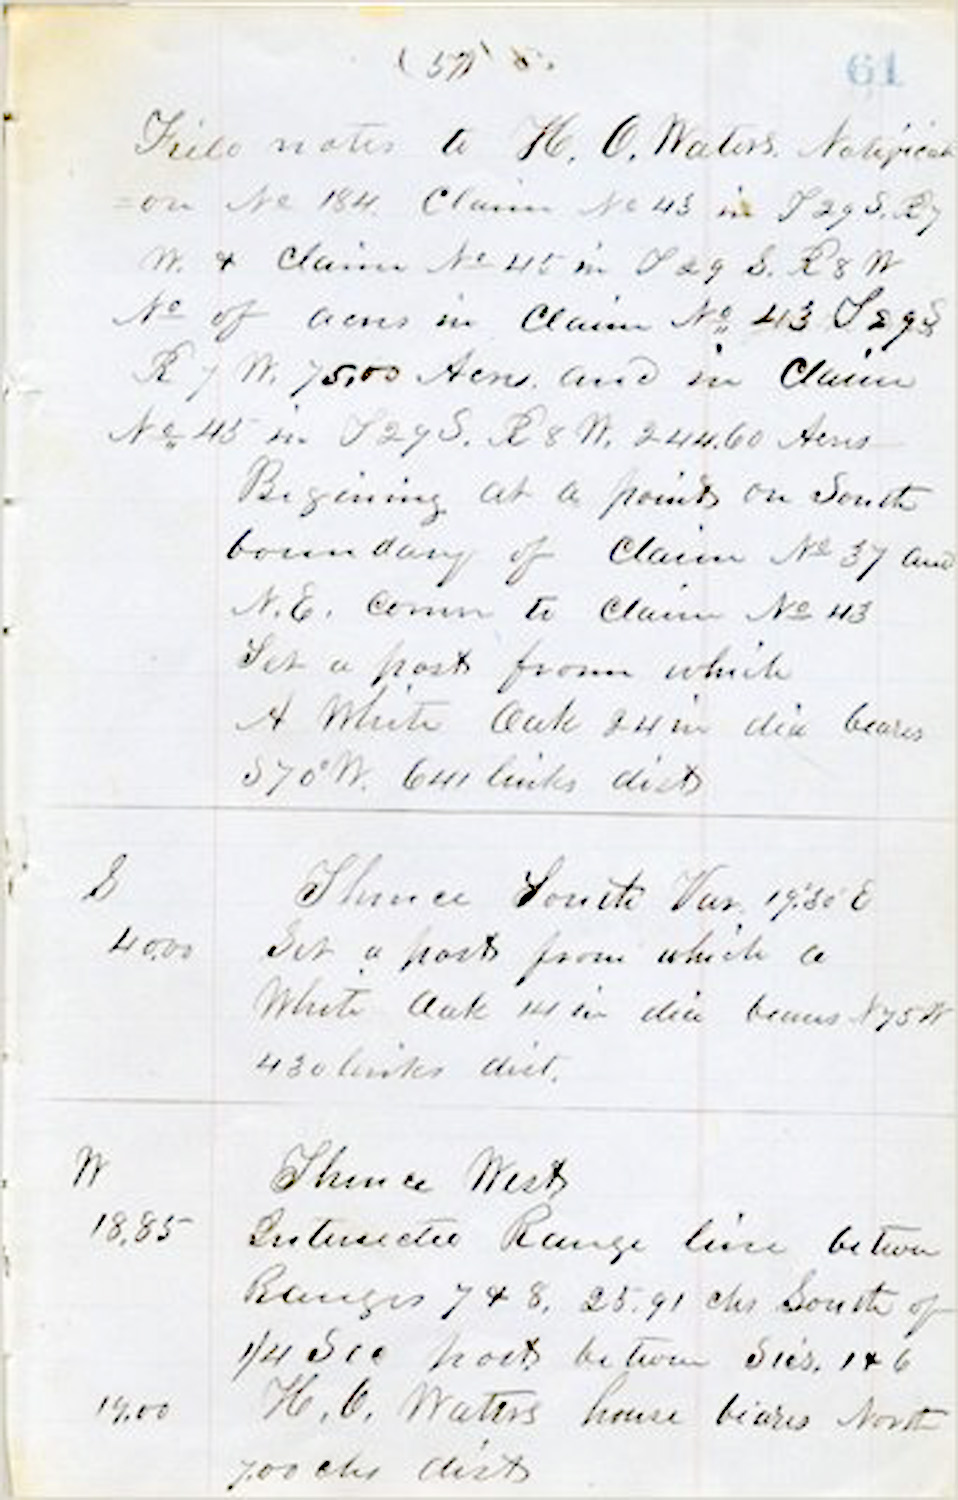 61
Field notes to H. O. Waters. Notificati
=on No 184. Claim No 43 in T 29 S. R 7
W. & Claim No 45 in T 29 S. R 8 W
No of acres in Claim No 43 T 29 S
R 7 W. 75.00 Acres. and in Claim
No 45 in T 29 S. R 8 W. 244.60 Acres
Begining at a point on South
boundary of Claim No 37 and
N.E. corner to Claim No 43
Set a post from which
A White Oak 24 in dia bears
S 70° W. 641 links dist
S Thence South Var. 19°30' E
40.00 Set a post from which a
White Oak 14 in dia bears N 75 W
430 links dist.
W Thence West
18.85 Intersected Range line between
Ranges 7 & 8, 25.91 chs South of
1/4 Sec post between Secs. 1 & 6
19.00 H. O. Waters house bears North
7.00 chs dist